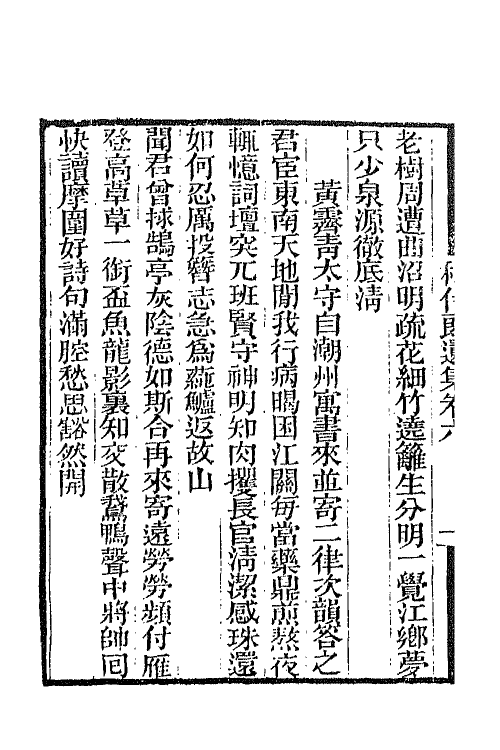 老樹周遭曲沼明疏花細竹遶籬生分明一覺江鄉夢
只少泉源徹底淸
黃霽靑太守自潮州寓書來並寄二律次韻答之
君宦東南天地閒我行病暍困江關每當藥鼎煎熬夜
輒憶詞壇突兀班賢守神明知肉攫長官淸潔感珠還
如何忍厲投簪志急爲蓴鱸返故山
聞君曾捄鵠亭灰陰德如斯合再來寄遠勞勞頻付雁
登高草草一銜盃魚龍影裏知交散鵞鴨聲中將帥囘
快讀摩圍好詩句滿腔愁思豁然開
遺集卷六
一